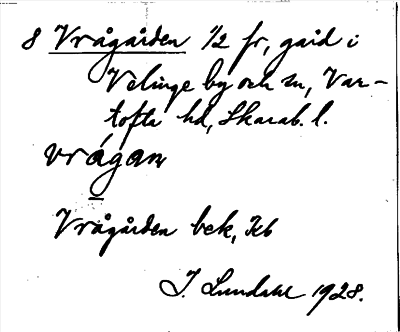 8 Vrågården 1/2 fr, gård i
Velinge by och sn, Var-
tofta hd, Skarab. l.
vrágaṇ
Vrågården bek, Kb
J. Lundahl 1928.